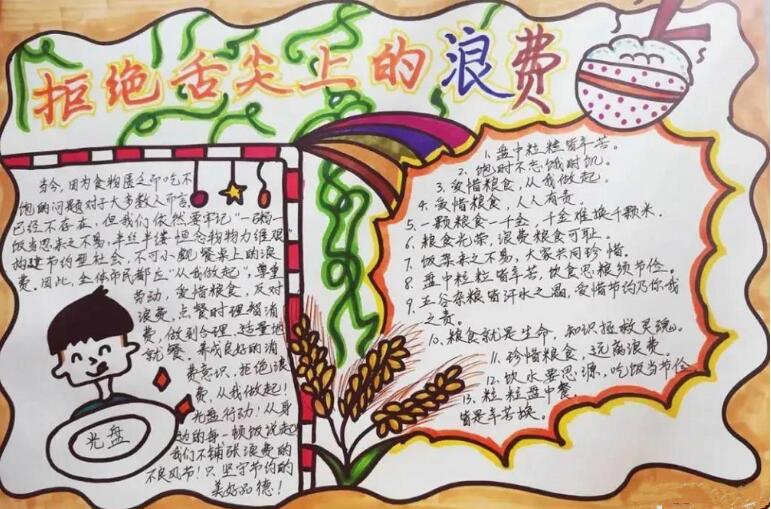 拒绝舌尖上的浪费
当今，因为食物匮乏而吃不
饱的问题对于大多数人而言，
已经不存在，但我们依然要牢记“一粥一
饭当思来之不易，半丝半缕恒念物力维艰”
构建节约型社会，不可小觑餐桌上的浪
费。因此，全体市民都应“从我做起”，尊重
劳动，爱惜粮食，反对
浪费，点餐时理智消
费，做到合理、适量地
就餐。养成良好的消
费意识，拒绝浪
费，从我做起！
光盘行动！从身
边的每一顿饭说起
我们不铺张浪费的
不良风节！只坚守节约的
美好品德！
光盘
1、盘中粒粒皆辛苦。
2、饱时不忘饿时饥。
3、爱惜粮食，从我做起。
4、爱惜粮食，人人有责。
5、一颗粮食一千金，千金难换千颗米。
6、粮食光荣，浪费粮食可耻。
7、饭菜来之不易，大家共同珍惜。
8、盘中粒粒皆辛苦，饮食思源须节俭。
9、五谷杂粮皆汗水之晶，爱惜节约乃你我
之责。
10、粮食就是生命，知识拯救灵魂。
11、珍惜粮食，远离浪费。
12、饮水要思源，吃饭当节俭
13、粒粒盘中餐，
皆是辛苦换。